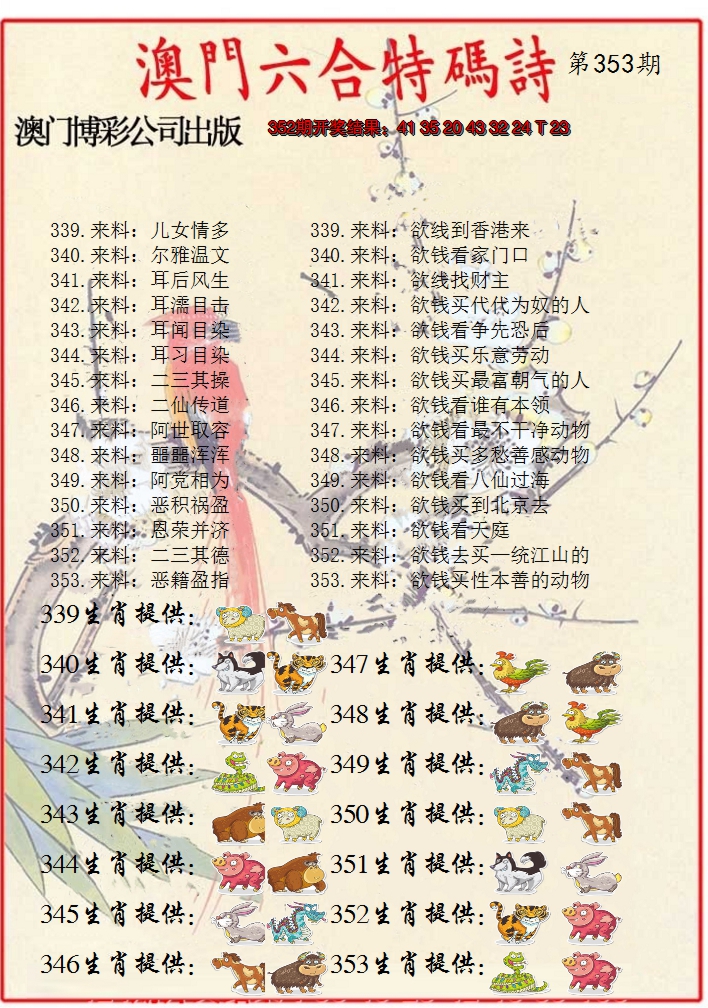 澳門六合特碼詩 第353期
澳门博彩公司出版 352期开奖结果：41 35 20 43 32 24 T 23
339.来料：儿女情多 339.来料：欲线到香港来
340.来料：尔雅温文 340.来料：欲钱看家门口
341.来料：耳后风生 341.来料：欲线找财主
342.来料：耳濡目击 342.来料：欲钱买代代为奴的人
343.来料：耳闻目染 343.来料：欲钱看争先恐后
344.来料：耳习目染 344.来料：欲钱买乐意劳动
345.来料：二三其操 345.来料：欲钱买最富朝气的人
346.来料：二仙传道 346.来料：欲钱看谁有本领
347.来料：阿世取容 347.来料：欲钱看最不干净动物
348.来料：噩噩浑浑 348.来料：欲钱买多愁善感动物
349.来料：阿党相为 349.来料：欲钱看八仙过海
350.来料：恶积祸盈 350.来料：欲钱买到北京去
351.来料：恩荣并济 351.来料：欲钱看天庭
352.来料：二三其德 352.来料：欲钱去买一统江山的
353.来料：恶籍盈指 353.来料：欲钱买性本善的动物
339生肖提供：
340生肖提供： 347生肖提供：
341生肖提供： 348生肖提供：
342生肖提供： 349生肖提供：
343生肖提供： 350生肖提供：
344生肖提供： 351生肖提供：
345生肖提供： 352生肖提供：
346生肖提供： 353生肖提供：